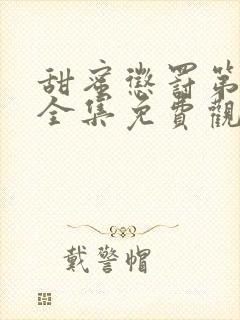 甜蜜懲罰第
全集免費觀
戴警帽